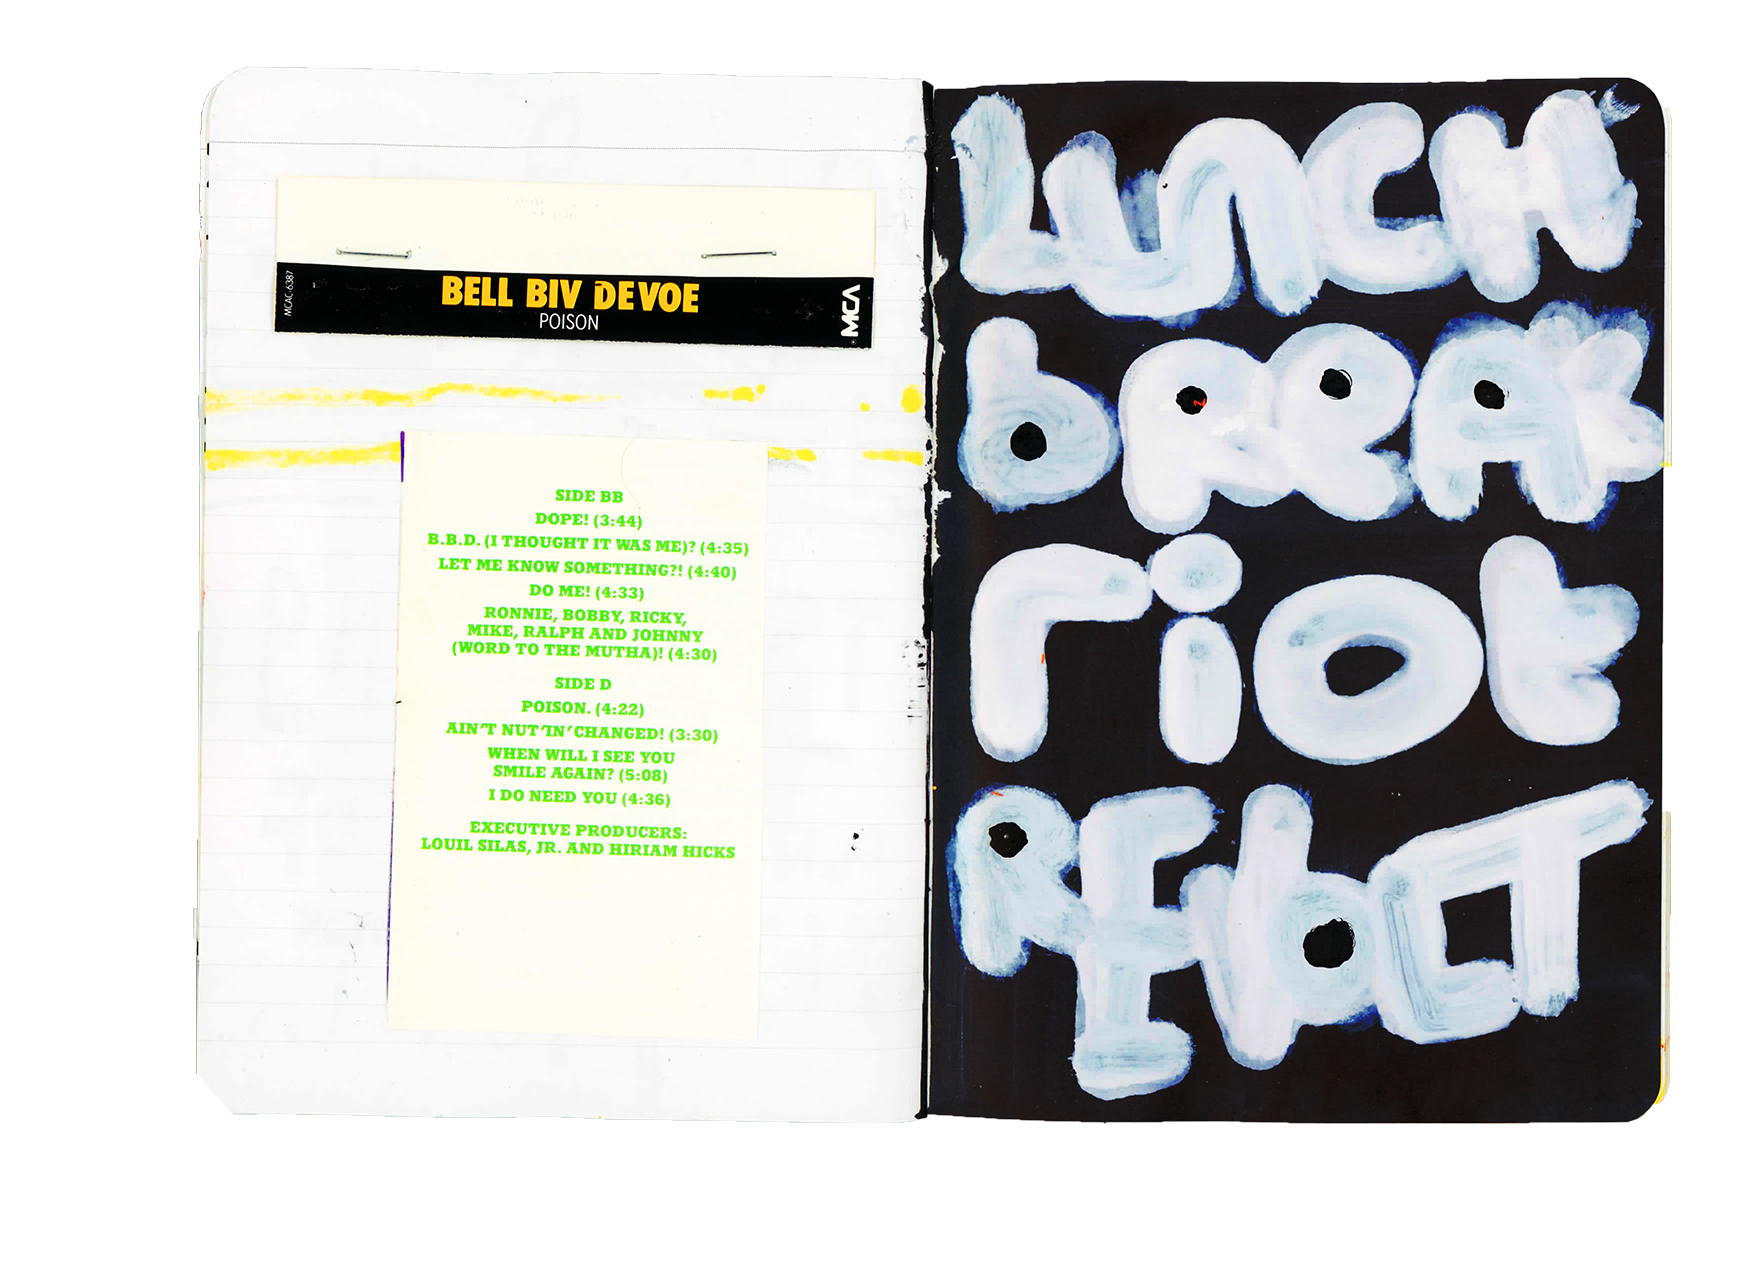 MCAC-6387
BELL BIV DEVOE
POISON
MCA
SIDE BB
DOPE! (3:44)
B.B.D. (I THOUGHT IT WAS ME)? (4:35)
LET ME KNOW SOMETHING?! (4:40)
DO ME! (4:33)
RONNIE, BOBBY, RICKY,
MIKE, RALPH AND JOHNNY
(WORD TO THE MUTHA)! (4:30)
SIDE D
POISON. (4:22)
AIN'T NUT'IN' CHANGED! (3:30)
WHEN WILL I SEE YOU
SMILE AGAIN? (5:08)
I DO NEED YOU (4:36)
EXECUTIVE PRODUCERS:
LOUIL SILAS, JR. AND HIRIAM HICKS
LUNCH
bREAK
riot